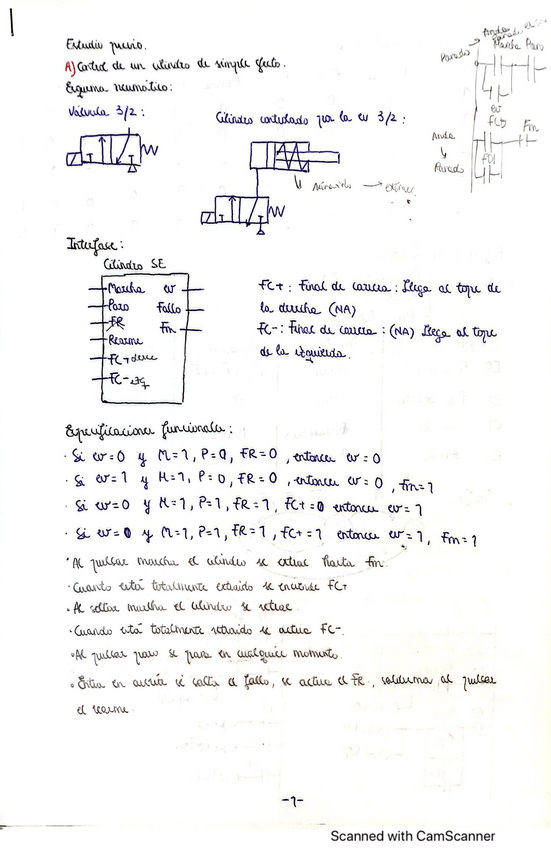 Estudio previo.
A) Control de un cilindro de simple efecto.
Esquema neumático:
Válvula 3/2 :
Cilindro controlado por la ev 3/2 :
Parado
Marcha Paro
ev
FC
Fm
Parado
Interfase:
Cilindro SE
Marcha
Paro
FR
Rearme
FC+ derc
FC- izq
ev
Fallo
Fm
FC+ : Final de carrera : Llega al tope de
la derecha (NA)
FC- : Final de carrera : (NA) Llega al tope
de la izquierda.
Especificaciones funcionales :
· Si ev=0 y M=1, P=0, FR=0 , entonces ev=0
· Si ev=1 y M=1, P=0, FR=0 , entonces ev=0 , fm=1
· Si ev=0 y M=1, P=1, FR=1, FC+=0 entonces ev=1
· Si ev=0 y M=1, P=1, FR=1, FC+=1 entonces ev=1, Fm=1
· Al pulsar marcha el cilindro se extrae hasta fm.
· Cuando está totalmente extraido se enciende FC+
· Al soltar marcha el cilindro se retrae.
· Cuando está totalmente retraido se activa FC-.
· Al pulsar paro se para en cualquier momento.
· Entra en avería si salta el fallo, se activa el FR, al pulsar
el rearme.
-1-
Scanned with CamScanner